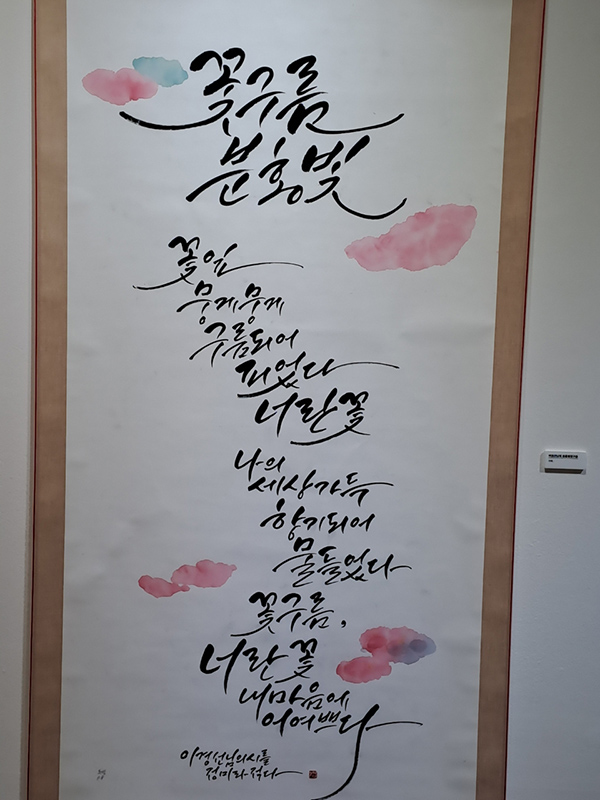 꽃구름
분홍빛
꽃잎
뭉게뭉게
구름되어
피었다
너란 꽃
나의
세상가득
향기되어
물들었다
꽃구름,
너란 꽃
내마음에
어여쁘다
이경선님의시를
정미라적다